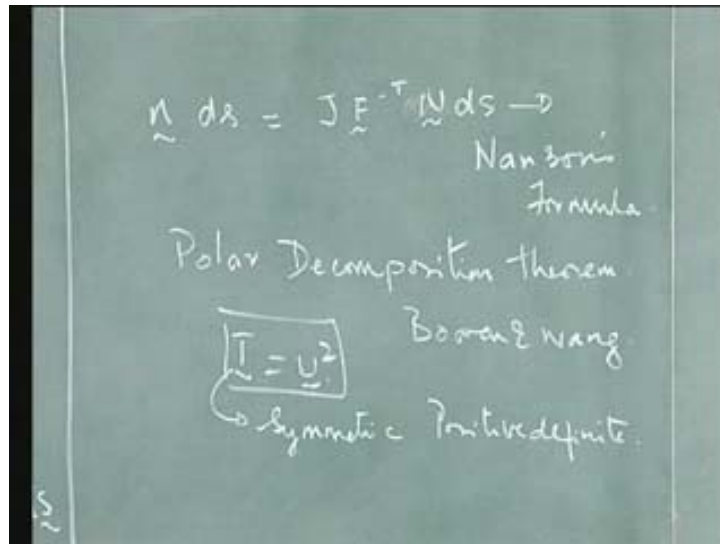 n ds = J F^-T N dS →
Nanson's
Formula.
Polar Decomposition theorem.
Bowen & Wang.
T = U²
↳ Symmetric Positive definite.
S